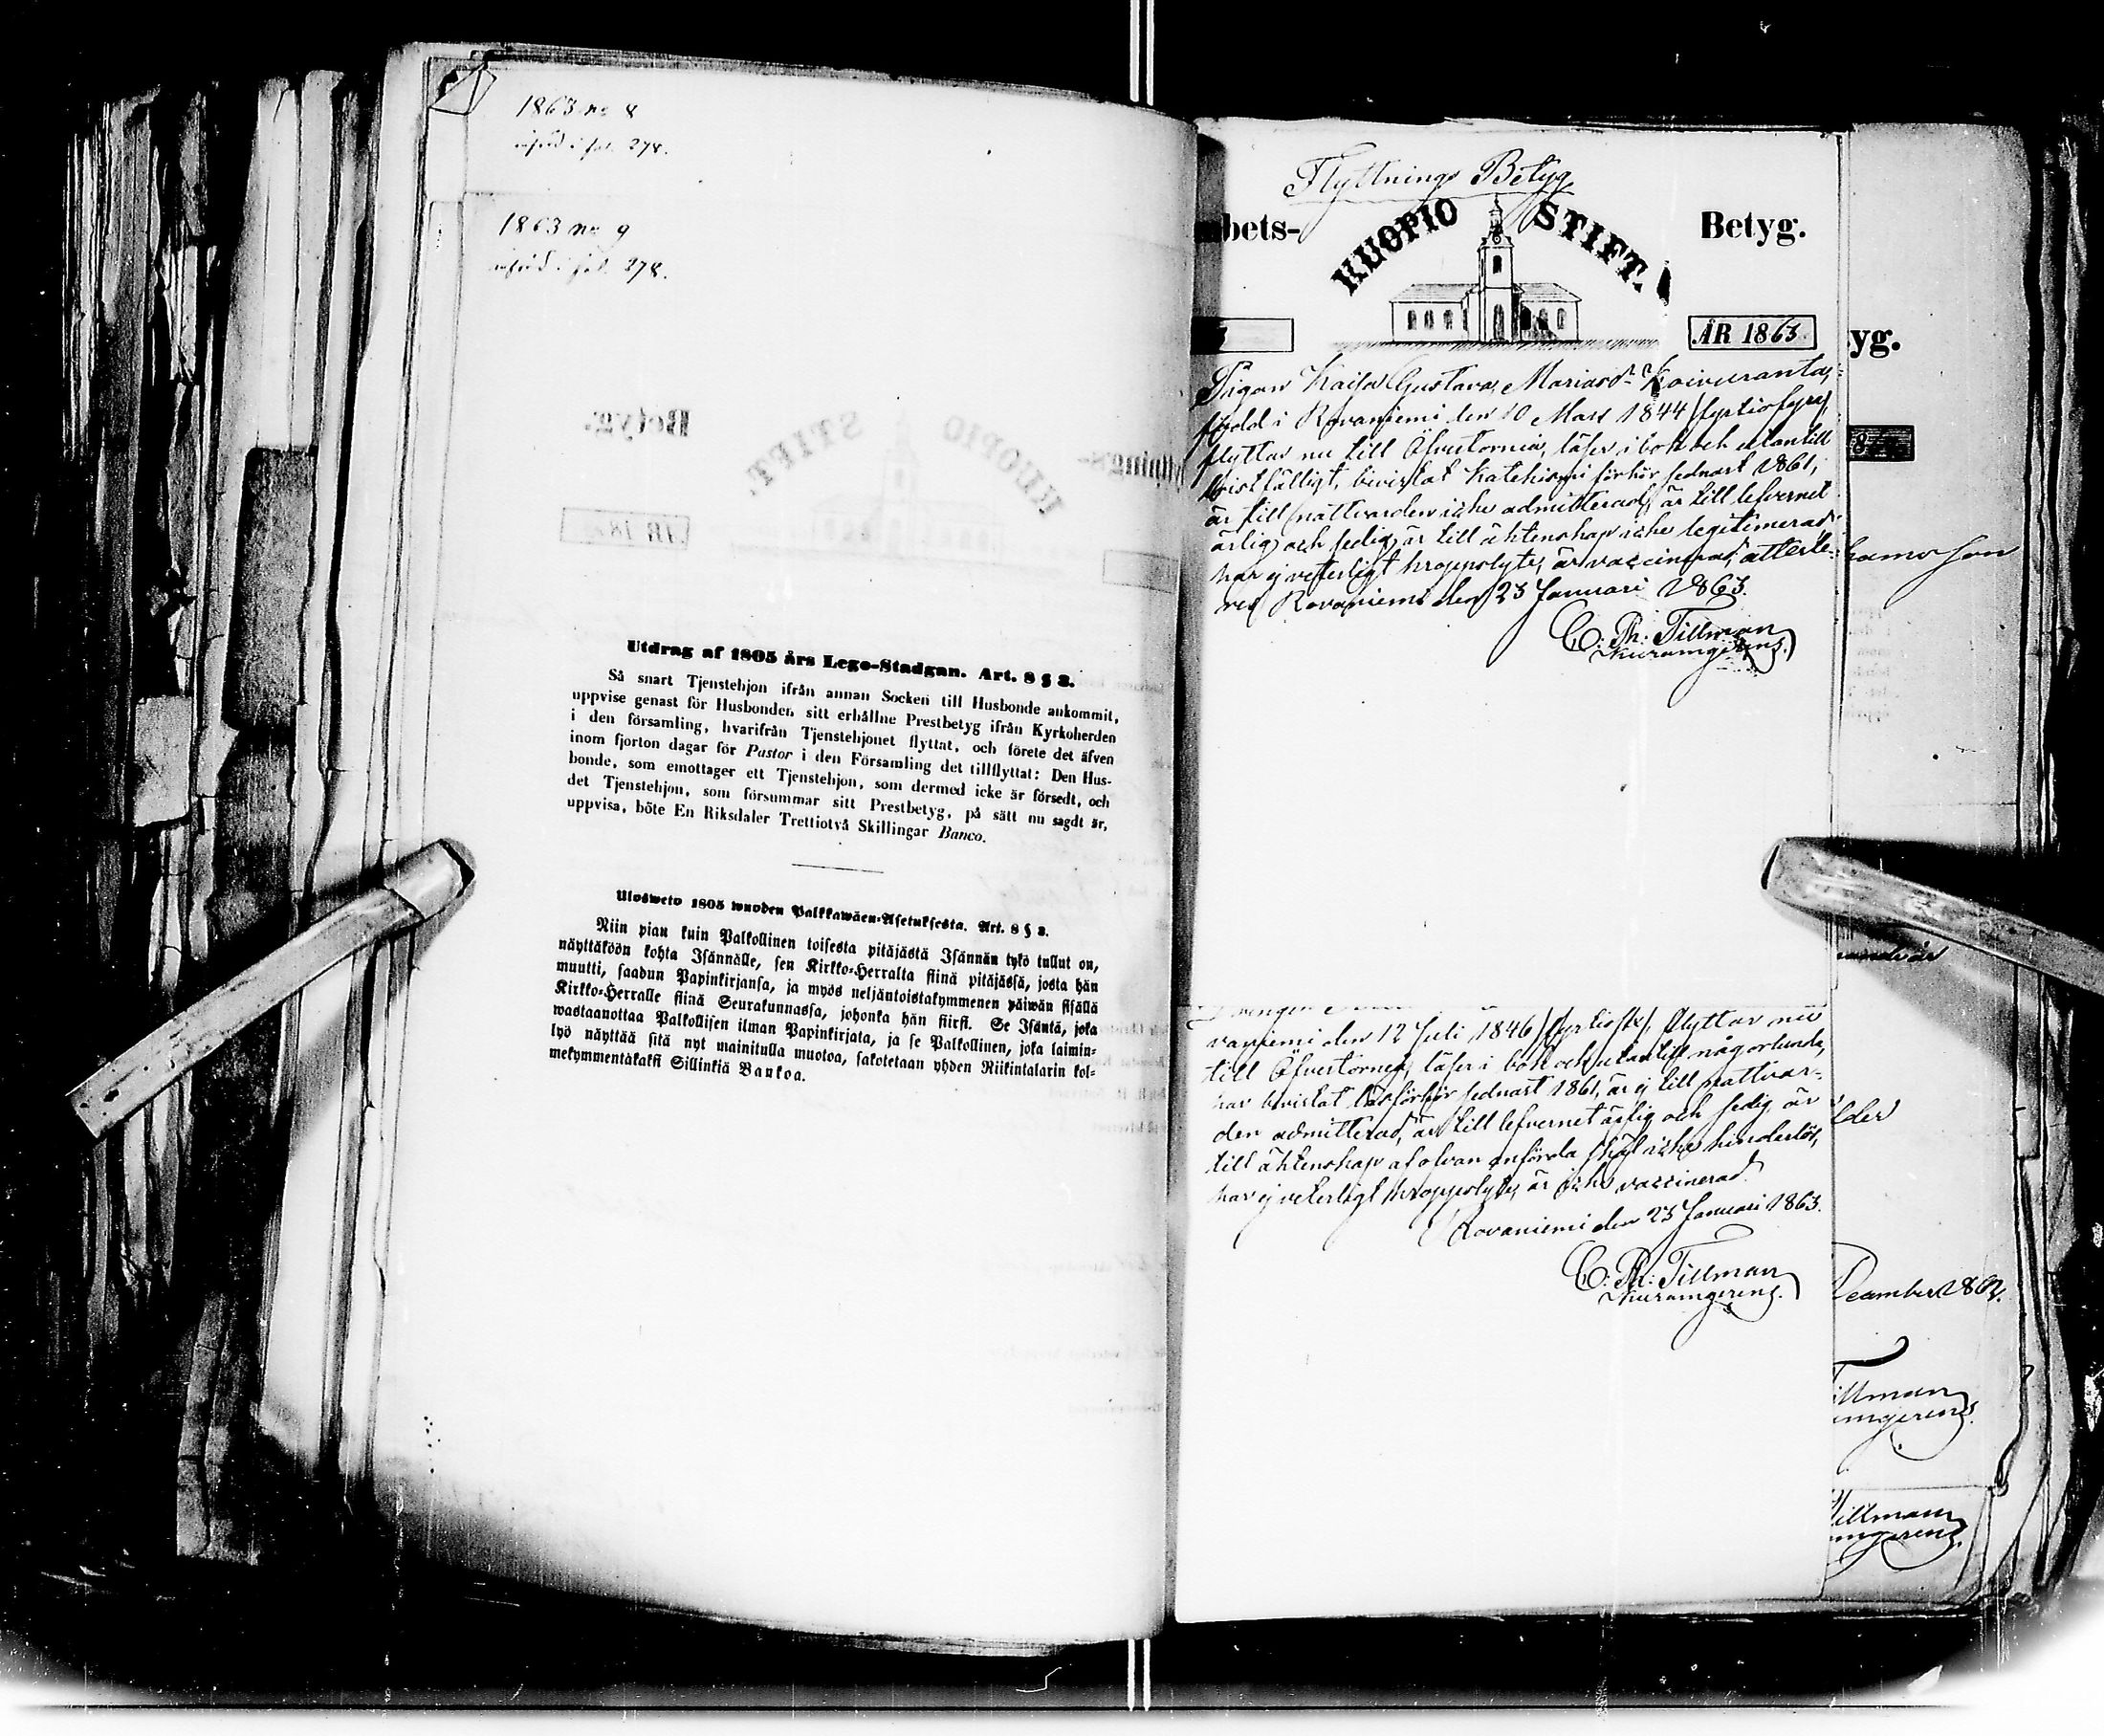 1863 no 8
införd i fol. 278.
1863 no 9
införd i fol. 278.
Utdrag af 1805 års Lego-Stadgan. Art. 8 § 3.
Så snart Tjenstehjon ifrån annan Socken till Husbonde ankommit,
uppvise genast för Husbonden sitt erhållne Prestbetyg ifrån Kyrkoherden
i den församling, hvarifrån Tjenstehjonet flyttat, och förete det äfven
inom fjorton dagar för Pastor i den Församling det tillflyttat: Den Hus-
bonde, som emottager ett Tjenstehjon, som dermed icke är försedt, och
det Tjenstehjon, som försummar sitt Prestbetyg, på sätt nu sagdt är,
uppvisa, böte En Riksdaler Trettiotvå Skillingar Banco.
Ulosweto 1805 wuoden Palkkawäen-Asetuksesta. Art. 8 § 3.
Niin pian kuin Palkollinen toisesta pitäjästä Isännän tykö tullut on,
näyttäköön kohta Isännälle, sen Kirkko-Herralta siinä pitäjässä, josta hän
muutti, saadun Papinkirjansa, ja myös neljäntoistakymmenen päiwän sisällä
Kirkko-Herralle siinä Seurakunnassa, johonka hän siirsi. Se Isäntä, joka
wastaanottaa Palkollisen ilman Papinkirjata, ja se Palkollinen, joka laimin-
lyö näyttää sitä nyt mainitulla muotoa, sakotetaan yhden Riikintalarin kol-
mekymmentäkaksi Sillinkiä Bankoa.
Flyttnings Betyg
bets- KUOPIO STIFT. Betyg.
ÅR 1863.
Pigan Kajsa Gustava Mariasdr Koivuranta,
född i Rovaniemi den 10 Mars 1844 /fyrtiofyra/,
flyttar nu till Öfvertorneå, läser i bok och utantill
bristfälligt, bivistat Katekismi förhör sednast 1861,
är till nattvarden icke admitterad, är till lefvernet
ärlig och sedig, är till äktenskap icke legitimerad,
har ej veterligt kroppslyte, är vaccinerad, atteste-
ras Rovaniemi den 23 Januari 1863.
C: Th: Tillman
Kuramgerens.
vaniemi den 12 Juli 1846 /fyrtiosex/, flyttar nu
till Öfvertorneå, läser i bok och utantill någorlunda,
har bivistat läsförhör sednast 1861, är ej till nattvar-
den admitterad, är till lefvernet ärlig och sedig, är
till äktenskap af ofvan anförda skäl icke hinderlös,
har ej veterligt kroppslyte, är icke vaccinerad.
Rovaniemi den 23 Januari 1863.
C: Th: Tillman
Kuramgerens.
yg.
son
December 1862.
Tillman
amgerens.
Tillman
amgerens.